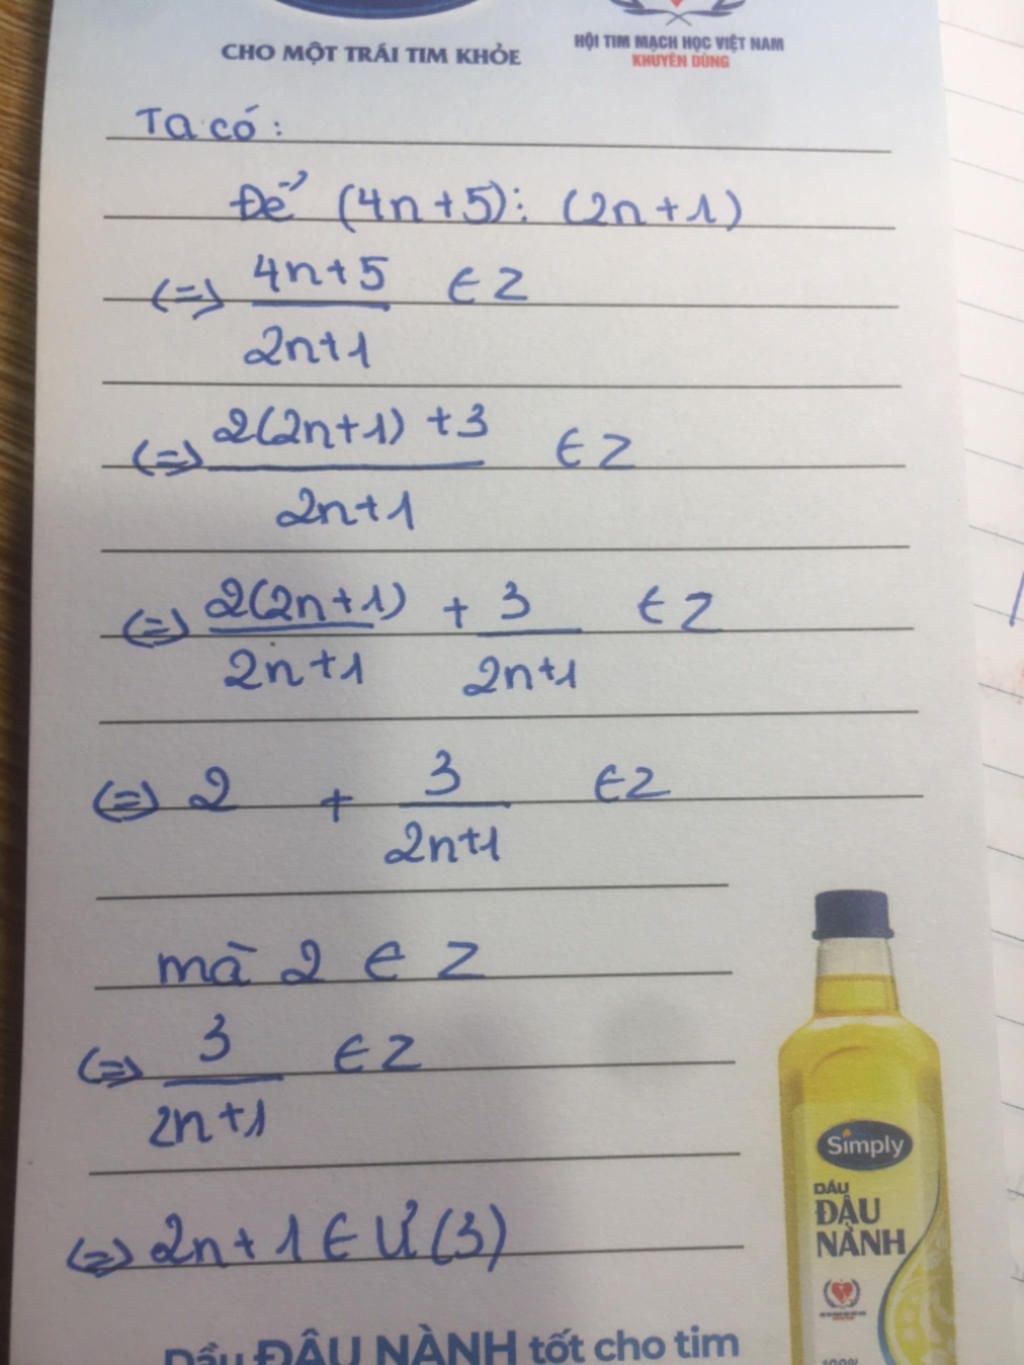 CHO MỘT TRÁI TIM KHỎE
HỘI TIM MẠCH HỌC VIỆT NAM
KHUYÊN DÙNG
Ta có:
Để (4n+5)⋮(2n+1)
(=) 4n+5 ∈ Z
2n+1
(=) 2(2n+1) +3 ∈ Z
2n+1
(=) 2(2n+1) + 3 ∈ Z
2n+1 2n+1
(=) 2 + 3 ∈ Z
2n+1
mà 2 ∈ Z
(=) 3 ∈ Z
2n+1
(=) 2n+1 ∈ Ư(3)
Simply
DẦU
ĐẬU
NÀNH
Dầu ĐẬU NÀNH tốt cho tim